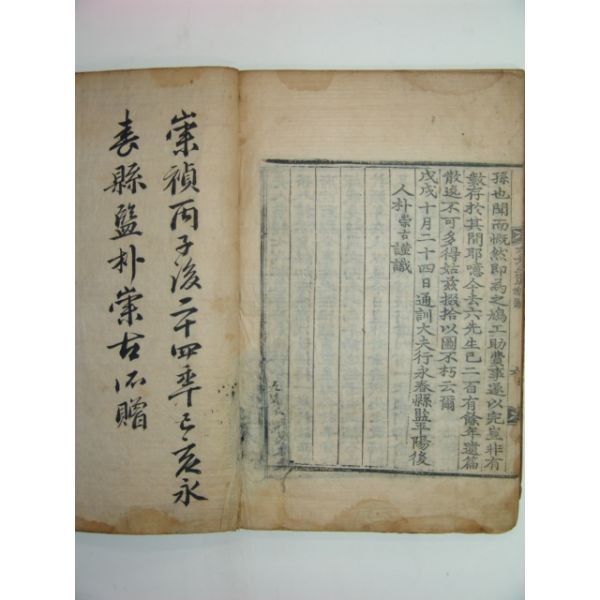 孫也聞而慨然即爲之鳩工助費事遂以完豈非有
數存於其間耶噫今去六先生已二百有餘年遺篇
散逸不可多得姑玆掇拾以圖不朽云爾
戊戌十月二十四日通訓大夫行永春縣監平陽後
人朴崇古謹識
崇禎丙子後二十四年己亥永
春縣監朴崇古所贈